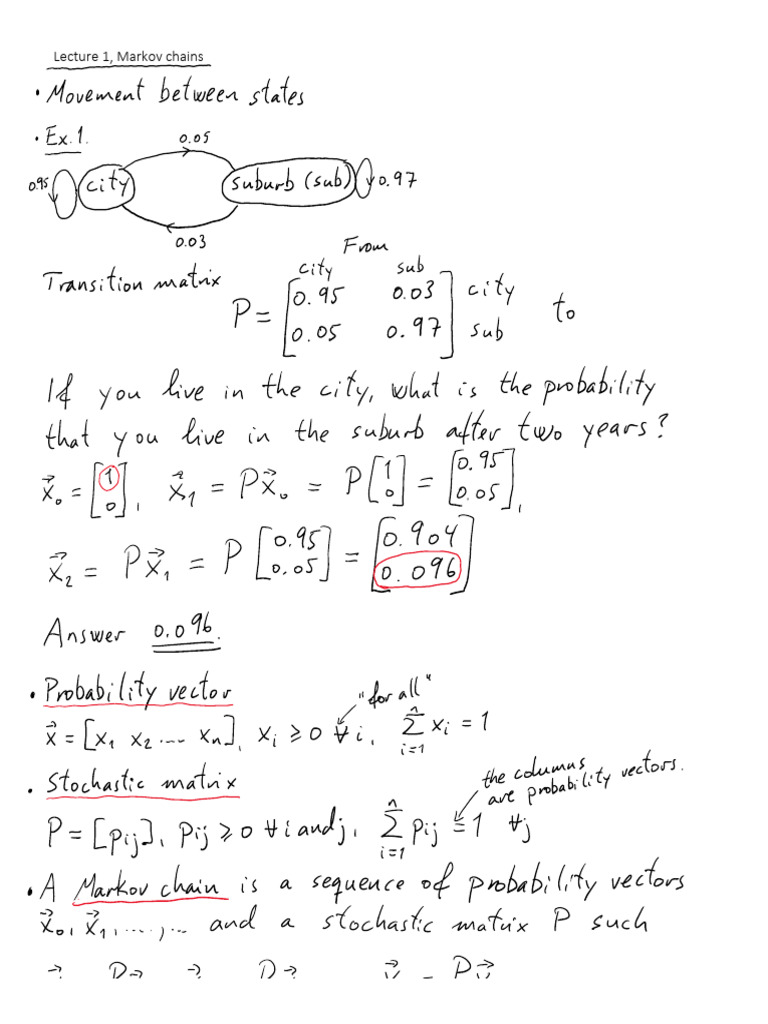 Lecture 1, Markov chains
• Movement between states
• Ex.1.
0.05
0.95 city suburb (sub) 0.97
0.03
From
Transition matrix city sub
P = [0.95 0.03] city
[0.05 0.97] sub to
If you live in the city, what is the probability
that you live in the suburb after two years?
x⃗₀ = [1 0], x⃗₁ = Px⃗₀ = P[1 0] = [0.95 0.05],
x⃗₂ = Px⃗₁ = P[0.95 0.05] = [0.904 0.096]
Answer 0.096.
• Probability vector "for all"
x⃗ = [x₁ x₂ .... xₙ], xᵢ ≥ 0 ∀i, ∑ᵢ₌₁ⁿ xᵢ = 1
• Stochastic matrix the columns
are probability vectors.
P = [pᵢⱼ], pᵢⱼ ≥ 0 ∀i and j, ∑ᵢ₌₁ⁿ pᵢⱼ = 1 ∀j
• A Markov chain is a sequence of probability vectors
x⃗₀, x⃗₁, ...., ... and a stochastic matrix P such